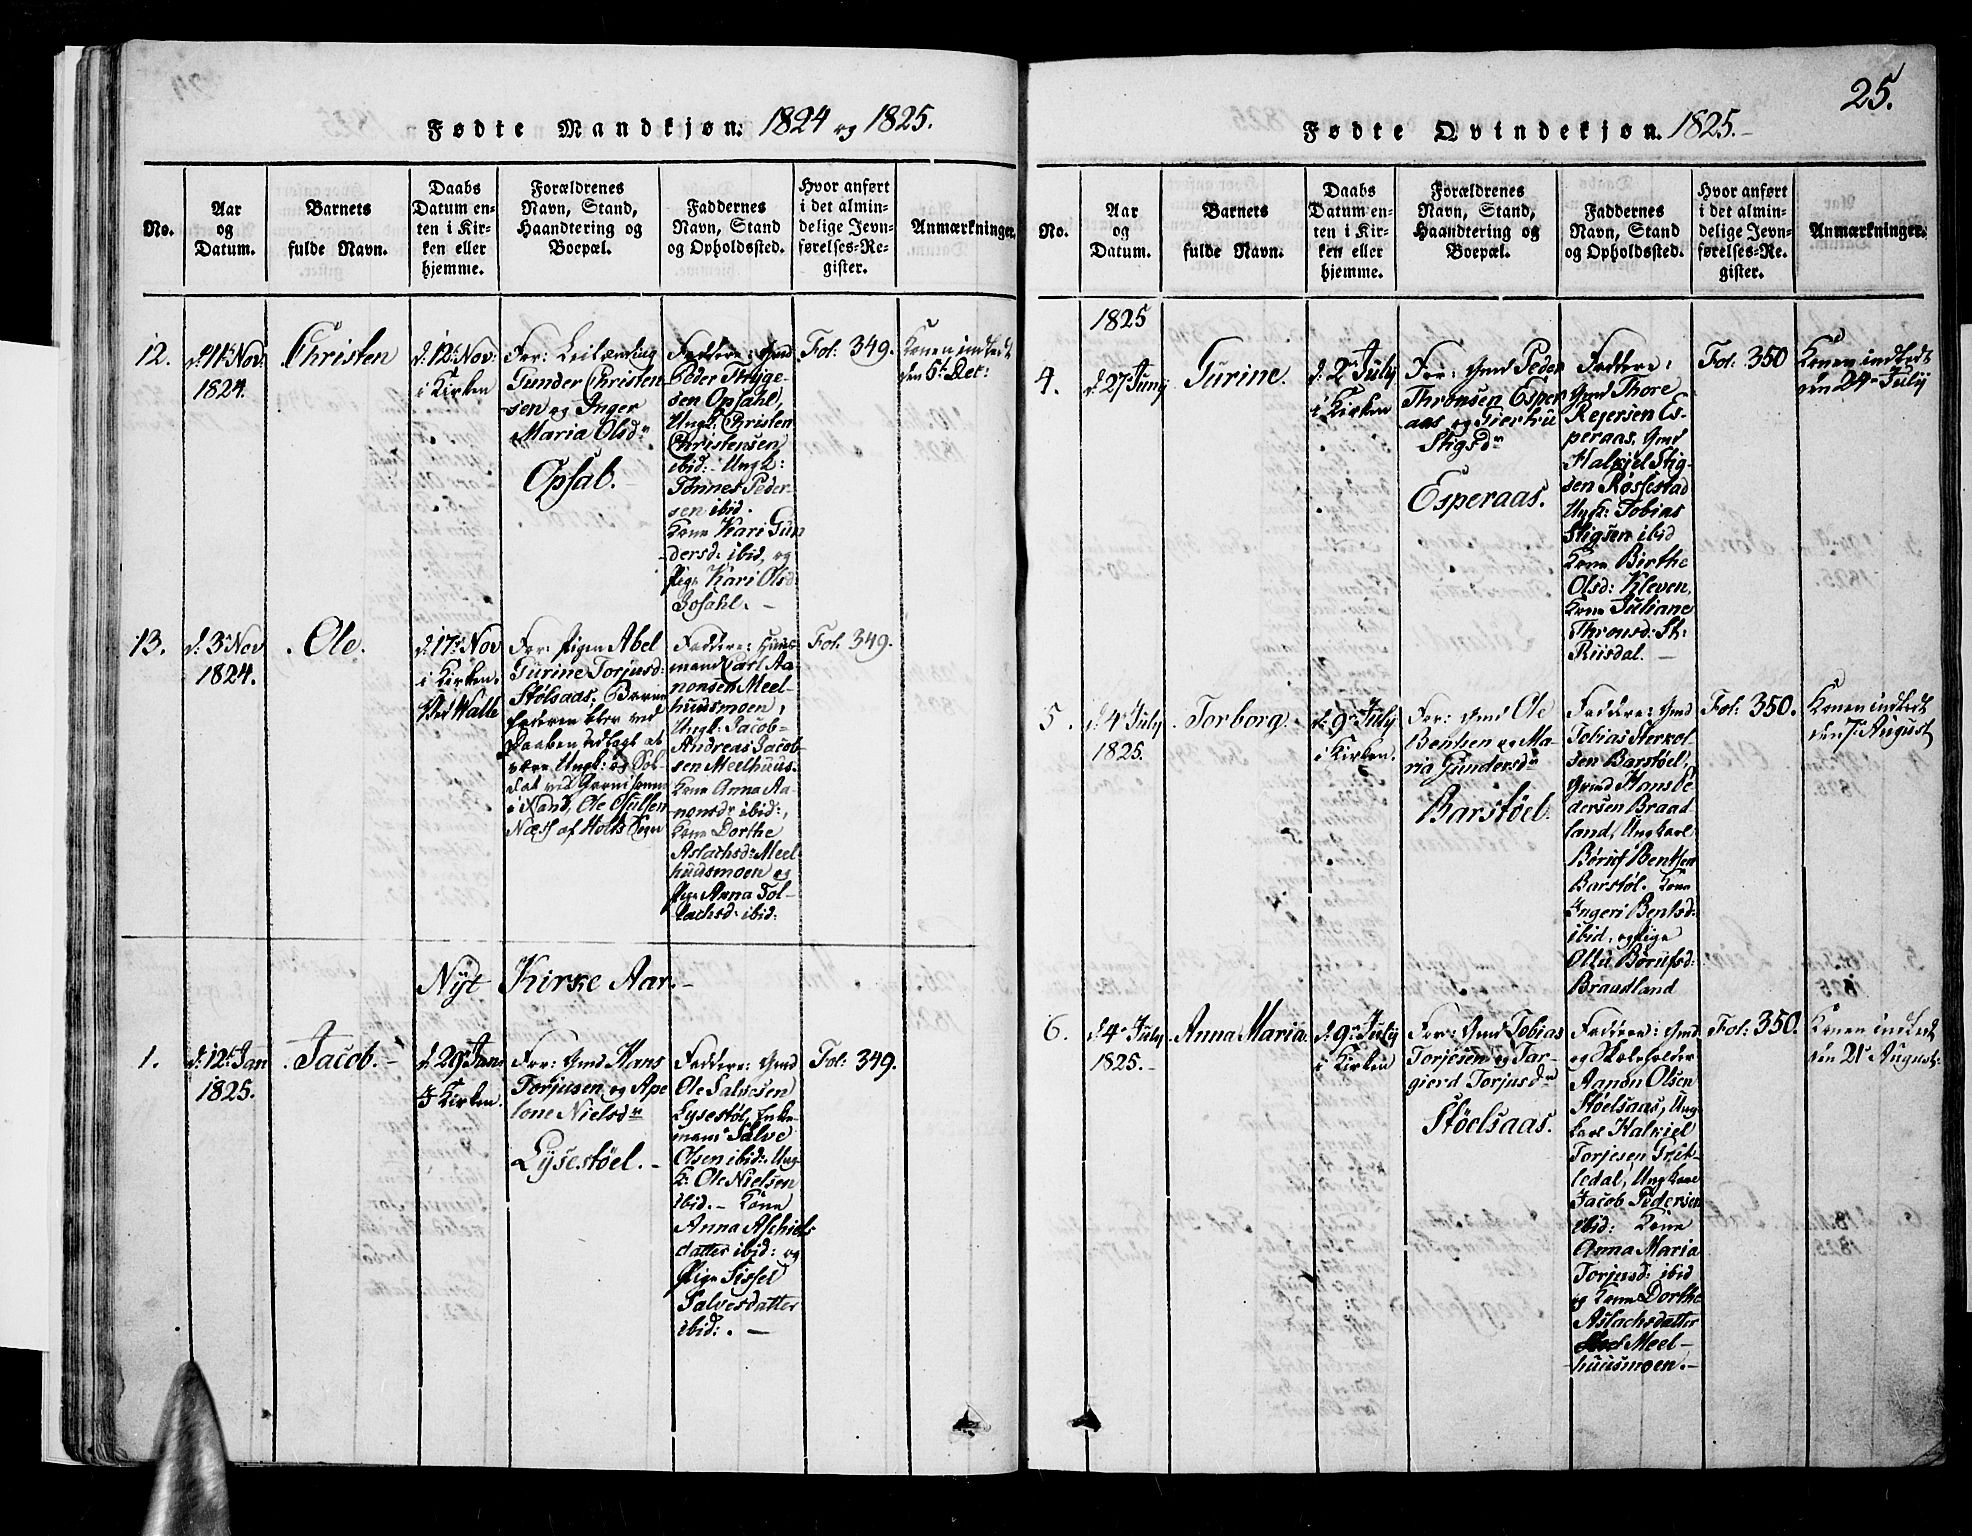 Fødte Mandkjøn. 1824 og 1825.
No.
Aar
og
Datum.
Barnets
fulde Navn.
Daabs
Datum en-
ten i Kir-
ken eller
hjemme.
Forældrenes
Navn, Stand,
Haandtering og
Boepæl.
Faddernes
Navn, Stand
og Opholdssted.
Hvor anført
i det almin-
delige Jevn-
førelses-Re-
gister.
Anmærkninger.
12.
d. 11te Nov:
1824.
Christen
d. 12te Nov:
i Kirken
For: Leilænding
Gunder Christen-
sen og Inger
Maria Olsdr
Opsal.
Faddere: Gmd
Peder Thryge-
sen Opsahl,
Ungk. Christen
Christensen
ibid: Ungk:
Tønnes Peder-
sen ibid.
Kone Kari Gun
dersd: ibid, og
Pige Kari Olsd:
Fol: 349.
Konen indledt
den 5te Dec:
13.
d. 3die Nov
1824.
Ole.
d. 17de Nov
i Kirken.
For: Pigen Abel
Turine Torjusd:
Stølsaas, Barne
faderen blev ved
Daaben udlagt at
være Ungk: og Sol-
dat ved
Næss af Holts
Faddere: Huus-
mand Carl Aa-
nonsen Meel-
huusmoen,
Ungk. Jacob
Andreas Jacob-
sen Meelhuus-
Kone Anna Aa-
nonsdr ibid:,
Kone Dorthe
Aslachsdr Meel-
huusmoen og
Pige Anna Tol-
lachsd: ibid:
Fol: 349.
Nyt Kirke Aar.
1.
d. 12te Jan
1825.
Jacob.
d. 29de Jan:
I Kirken.
For: Gmd Hans
Torjusen og Ape
lone Nielsdr
Lysestøel.
Faddere: Gmd
Ole Salvesen
Lysestøl, Enke-
mand Salve
Olsen ibid:, Ung
k: Ole Nielsen
ibid. Kone
Anna Aschiels
datter ibid: og
Pige Sissel
Salvesdatter
ibid:.
Fol: 349.
25.
Fødte Qvindekjøn. 1825.
No.
Aar
og
Datum.
Barnets
fulde Navn.
Daabs
Datum en-
ten i Kir-
ken eller
hjemme.
Forældrenes
Navn, Stand,
Haandtering og
Boepæl.
Faddernes
Navn, Stand
og Opholdssted.
Hvor anført
i det almin-
delige Jevn-
førelses-Re-
gister.
Anmærkninger.
1825
4.
d. 27 Juny
Turine.
d: 2den July
i Kirken
For: Gmd Peder
Thronsen Esper
aas og Giertru
Stigsdr
Esperaas.
Faddere:
Gmd Thore
Rejersen Es-
peraas, Gmd
Halvjel Stig-
sen Røssestad
Ungk: Tobias
Stigsen ibid
Kone Birthe
Olsd: Kleven,
Kone Juliane
Thronsd: St:
Riisdal.
Fol: 350
Konen indledt
den 24de July
5.
d. 4de July
1825.
Torborg.
d: 9de July
i Kirken.
For: Gmd Ole
Bentsen og Ma-
ria Gundersdr
Barstøel.
Faddere: Gmd
Tobias Sterkol-
sen Barstøel,
Gmd Hans Pe
dersen Braad
land, Ungkarl
Børuf Bentsen
Barstøl. Kone
Ingeri Bentsd:
ibid, og Pige
Børufsd:
Braadland
Fol: 350.
Konen indledt
den 7de August
6.
d. 4de July
1825.
Anna Maria.
d. 9de July
i Kirken
For: Gmd Tobias
Torjesen og Tar-
gierd Torjusdr
Støelsaas.
Faddere: Gmd
og Skoleholder
Aanon Olsen
Støelsaas, Ung
karl Halvjel
Torjesen Trit-
ledal, Ungkarl
Jacob Pedersen
ibid: Kone
Anna Maria
Torjusd: ibid
og Kone Dorthe
Aslachsdatter
Meel-
huusmoen.
Fol: 350.
Konen indledt
den 21de August.